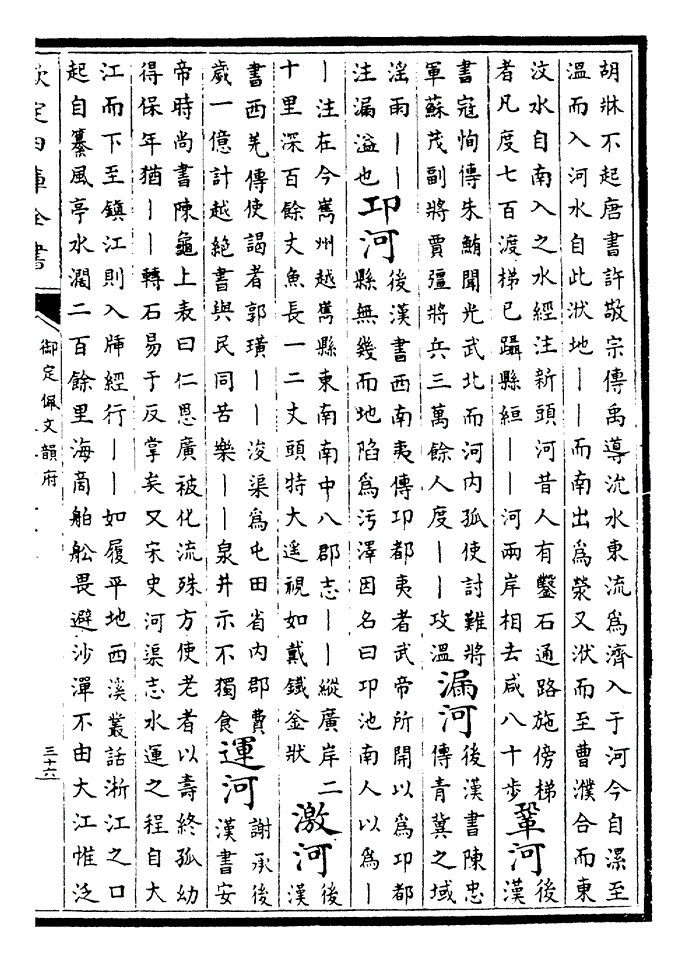 胡牀不起唐書許敬宗傳禹導沇水東流為濟入于河今自漯至
溫而入河水自此洑地——而南出為滎又洑而至曹濮合而東
汶水自南入之水經注新頭河昔人有鑿石通路施傍梯
者凡度七百渡梯已躡縣絙——河兩岸相去咸八十步
鞏河
後
漢
書寇恂傳朱鮪聞光武北而河内孤使討難將
軍蘇茂副將賈彊將兵三萬餘人度——攻溫
漏河
後漢書陳忠
傳青冀之域
淫雨——
注漏溢也
卭河
後漢書西南夷傳卭都夷者武帝所開以為卭都
縣無幾而地陷為污澤因名曰卭池南人以為—
—注在今嶲州越嶲縣東南南中八郡志——縱廣岸二
十里深百餘丈魚長一二丈頭特大遥視如戴鐵釜狀
激河
後
漢
書西羌傳使謁者郭璜——浚渠為屯田省内郡費
歲一億計越絶書與民同苦樂——泉井示不獨食
運河
謝承後
漢書安
帝時尚書陳龜上表曰仁恩廣被化流殊方使老者以壽終孤幼
得保年猶——轉石易于反掌矣又宋史河渠志水運之程自大
江而下至鎮江則入牐經行——如履平地西溪叢話淛江之口
起自纂風亭水濶二百餘里海商舶舩畏避沙潬不由大江惟泛
欽定四庫全書
御定佩文韻府
三十六